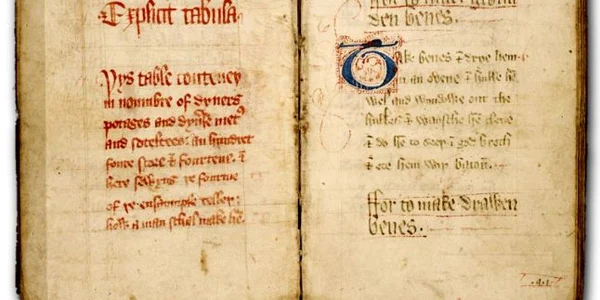 Explicit tabula.
Þys table conteney
in noumbre of dyuers
potages and dyuse metꝭ
and soteltees. an hundret
foure score & fourtene. &
here sewyng ye fourme
of ye ensample telleþ
how a man schal make he.
ffor to make groun
den benes.
Take benes & drye hem i
an ovene & hulle he
wel and wyndowe out the
hulkes & waysche he clene
& do he to seeþ i god broth
& ete hem wiþ bacon.
ffor to make drawen
benes.